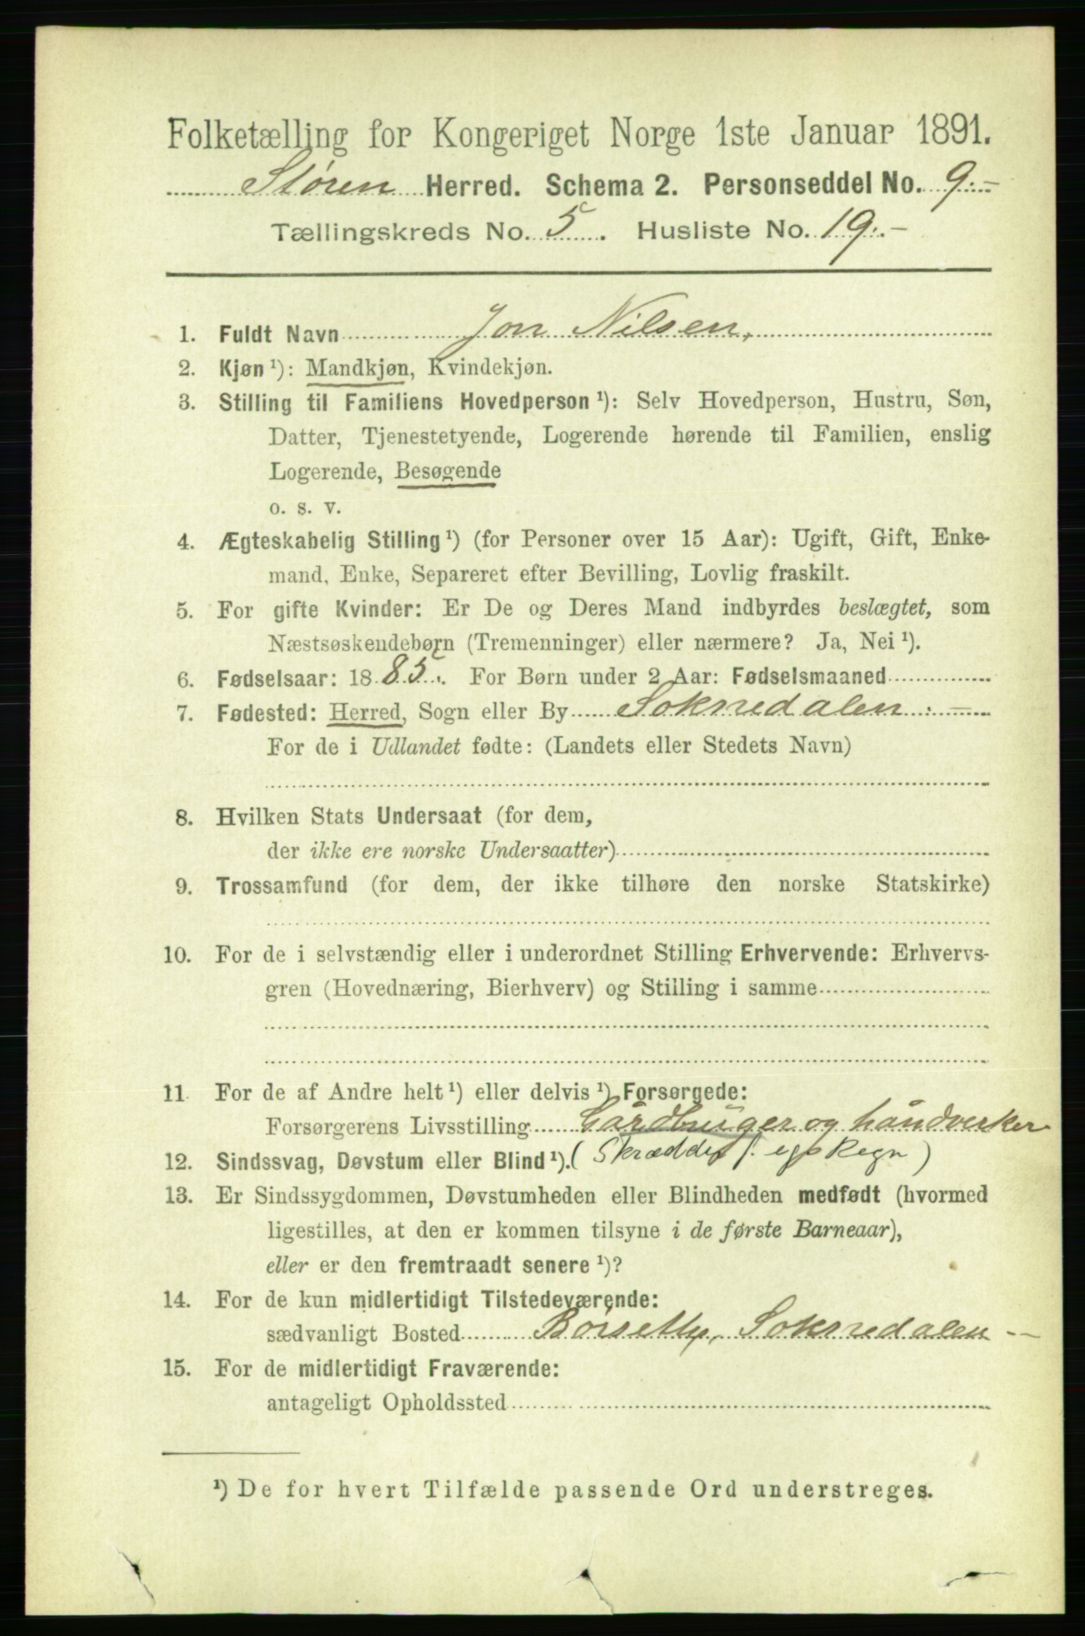 Folketælling for Kongeriget Norge 1ste Januar 1891.
Støren Herred. Schema 2. Personseddel No. 9.-
Tællingskreds No. 5. Husliste No. 19.-
1. Fuldt Navn Jon Nilsen,
2. Kjøn ¹): Mandkjøn, Kvindekjøn.
3. Stilling til Familiens Hovedperson ¹): Selv Hovedperson, Hustru, Søn,
Datter, Tjenestetyende, Logerende hørende til Familien, enslig
Logerende, Besøgende
o. s. v.
4. Ægteskabelig Stilling ¹) (for Personer over 15 Aar): Ugift, Gift, Enke-
mand, Enke, Separeret efter Bevilling, Lovlig fraskilt.
5. For gifte Kvinder: Er De og Deres Mand indbyrdes beslægtet, som
Næstsøskendebørn (Tremenninger) eller nærmere? Ja, Nei ¹).
6. Fødselsaar: 1885. For Børn under 2 Aar: Fødselsmaaned
7. Fødested: Herred, Sogn eller By Soknedalen.-
For de i Udlandet fødte: (Landets eller Stedets Navn)
8. Hvilken Stats Undersaat (for dem,
der ikke ere norske Undersaatter)
9. Trossamfund (for dem, der ikke tilhøre den norske Statskirke)
10. For de i selvstændig eller i underordnet Stilling Erhvervende: Erhvervs-
gren (Hovednæring, Bierhverv) og Stilling i samme
11. For de af Andre helt ¹) eller delvis ¹) Forsørgede:
Forsørgerens Livsstilling Gårdbruger og håndverker
12. Sindssvag, Døvstum eller Blind ¹). (Skrædder f. egs Regn)
13. Er Sindssygdommen, Døvstumheden eller Blindheden medfødt (hvormed
ligestilles, at den er kommen tilsyne i de første Barneaar),
eller er den fremtraadt senere ¹)?
14. For de kun midlertidigt Tilstedeværende:
sædvanligt Bosted Soknedalen -
15. For de midlertidigt Fraværende:
antageligt Opholdssted
¹) De for hvert Tilfælde passende Ord understreges.